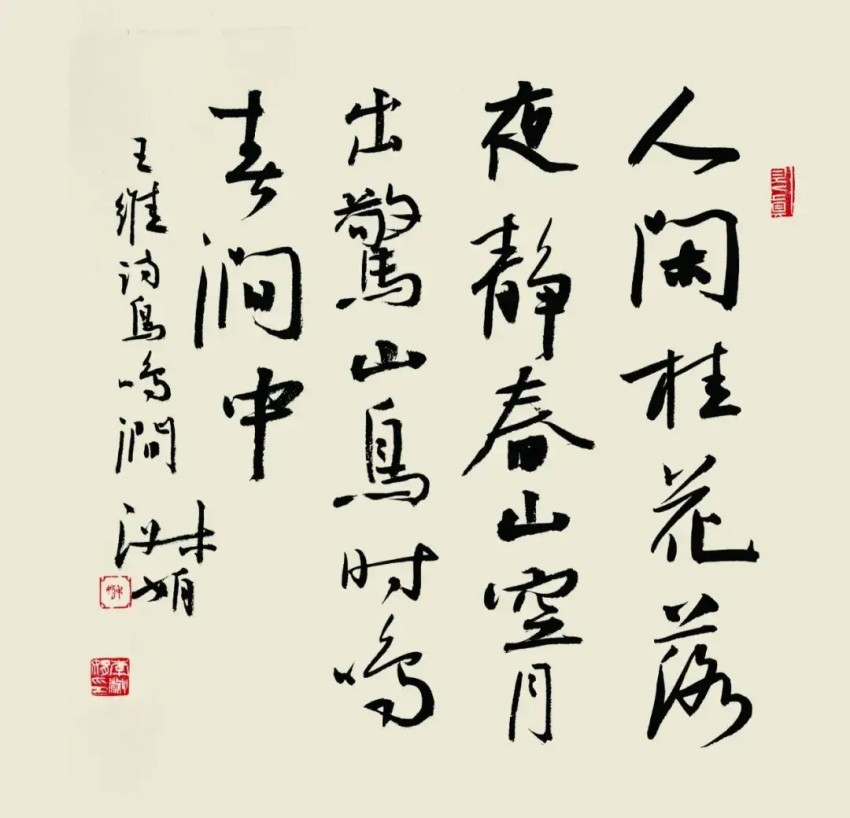 人闲桂花落
夜静春山空月
出驚山鳥时鸣
春涧中
王维诗鳥鸣涧